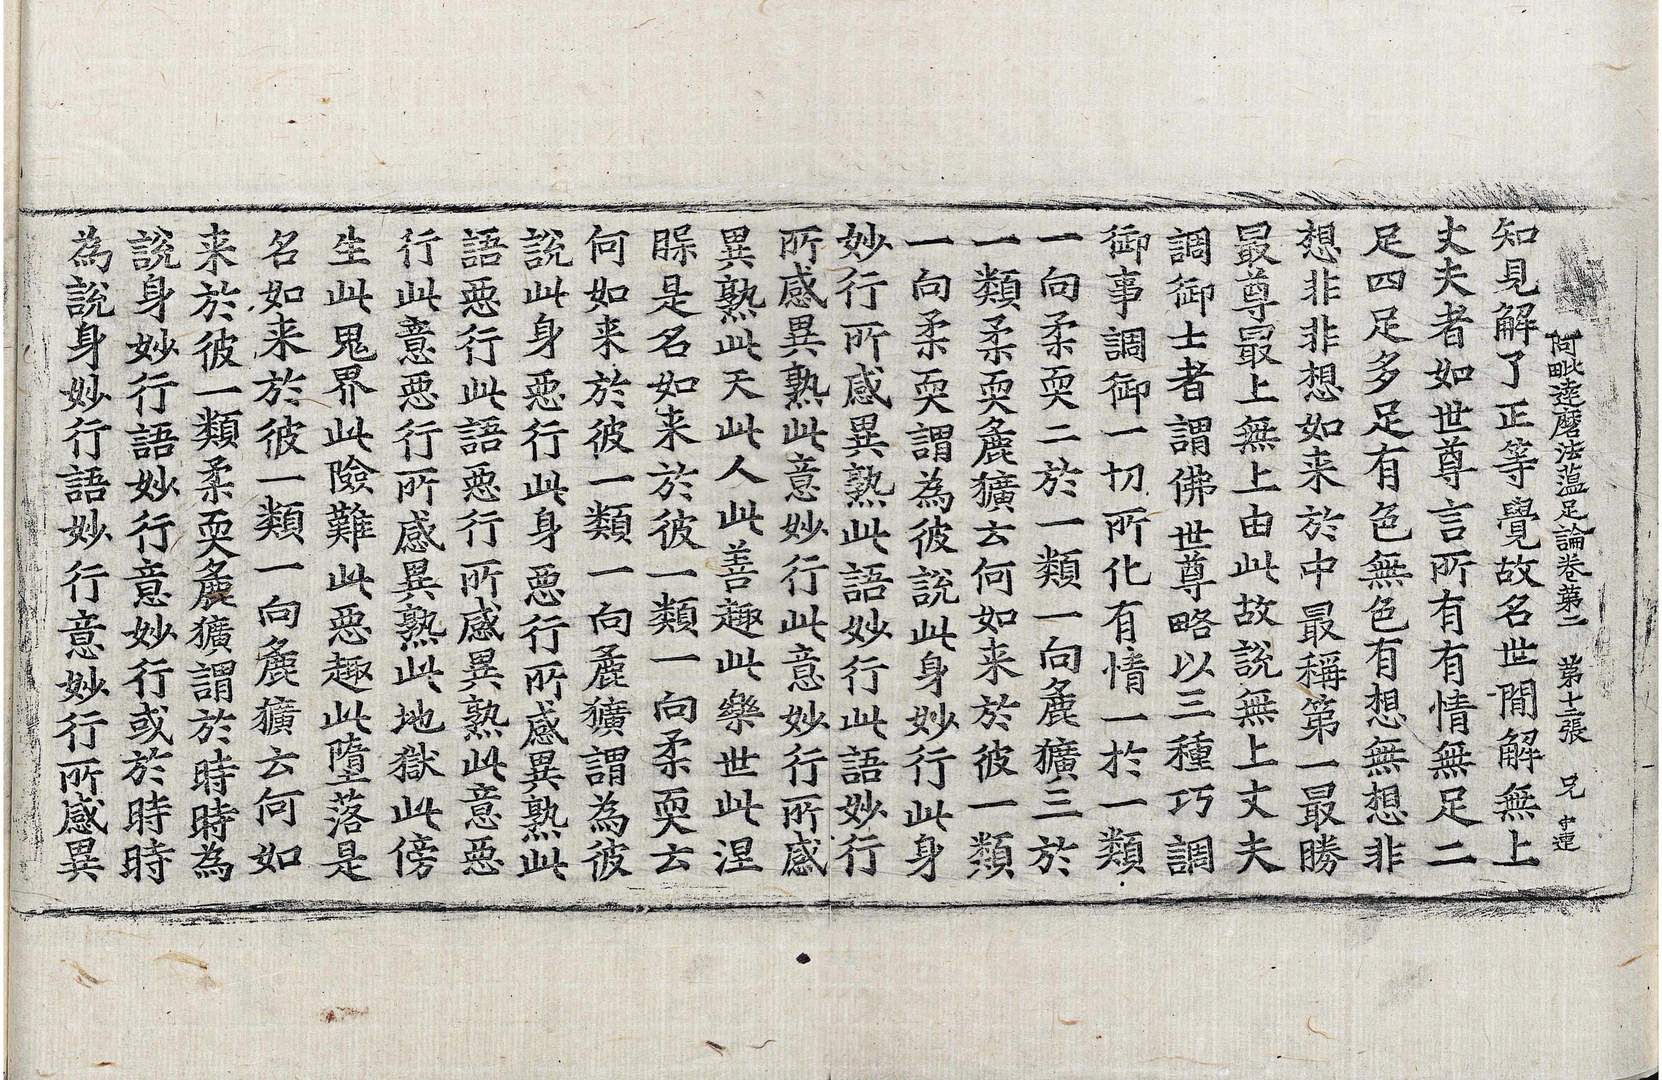 阿毗達磨法蕰足論卷第二 第十二張 兄 中連
知見解了正等覺故名世閒解無上
丈夫者如世尊言所有有情無足二
足四足多足有色無色有想無想非
想非非想如来於中最稱第一最勝
最尊最上無上由此故說無上丈夫
調御士者謂佛世尊略以三種巧調
御事調御一切所化有情一於一類
一向柔耎二於一類一向麁獷三於
一類柔耎麁獷云何如来於彼一類
一向柔耎謂為彼說此身妙行此身
妙行所感異熟此語妙行此語妙行
所感異熟此意妙行此意妙行所感
異熟此天此人此善趣此樂世此涅
槃是名如来於彼一類一向柔耎云
何如来於彼一類一向麁獷謂為彼
說此身惡行此身惡行所感異熟此
語惡行此語惡行所感異熟此意惡
行此意惡行所感異熟此地獄此傍
生此鬼界此險難此惡趣此墮落是
名如来於彼一類一向麁獷云何如
来於彼一類柔耎麁獷謂於時時為
說身妙行語妙行意妙行或於時時
為說身妙行語妙行意妙行所感異